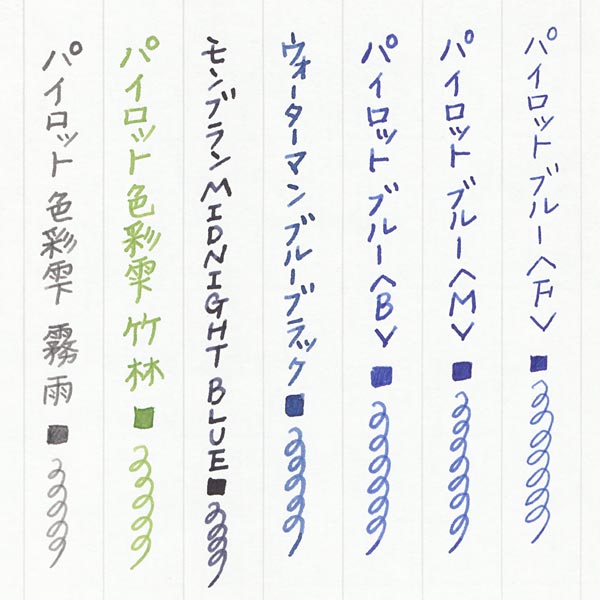 パイロット ブルー<F>
パイロット ブルー<M>
パイロット ブルー<B>
ウォーターマン ブルーブラック
モンブラン MIDNIGHT BLUE
パイロット 色彩雫 竹林
パイロット 色彩雫 霧雨